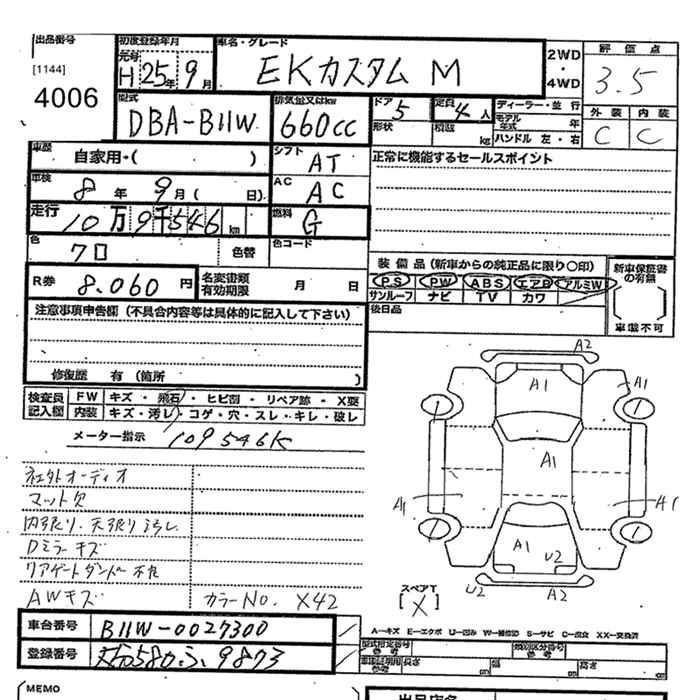 出品番号
[1144]
4006
初度登録年月
元号
H 25年 9月
車名・グレード
EKカスタム M
2WD
・
4WD
評価点
3.5
外装 内装
C C
型式
DBA-B11W
排気量又はkw
660cc
ドア
5
形状
定員
4人
積載
kg
ディーラー・並行
モデル年式 年
ハンドル 左・右
車歴
自家用・( )
シフト
AT
正常に機能するセールスポイント
車検
8年 9月( 日)
AC
AC
走行
10万9千546km
燃料
G
色
クロ
色替
色コード
R券
8,060円
名変書類有効期限 月 日
装備品(新車からの純正品に限り○印)
PS PW ABS エアB アルミW
サンルーフ ナビ TV カワ
新車保証書の有無
[ ]
車載不可
後日品
注意事項申告欄(不具合内容等は具体的に記入して下さい)
修復歴 有(箇所 )
検査員記入欄
FW キズ・飛石・ヒビ割・リペア跡・X要
内装 キズ・汚レ・コゲ・穴・スレ・キレ・破レ
メーター指示 109546K
社外オーディオ
マット欠
内張り・天張り汚レ
Dミラーキズ
リアゲートダンパー不良
AWキズ
カラーNo. X42
A2
A1
A1
1
1
A1
A1
A1
1
1
A1
U2
U2
A2
スペアT
[X]
車台番号
B11W-0027300
登録番号
9873
A-キズ E-エクボ U-凹み W-補修跡 S-サビ C-腐食 XX-交換済
型式指定番号
参考
類別区分番号
参考
車検証明用
参考
長さ cm
幅 cm
高さ cm
[MEMO
出品店名